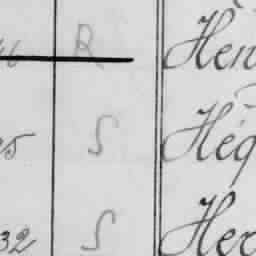 R Hen
5 S Héq
32 S Her